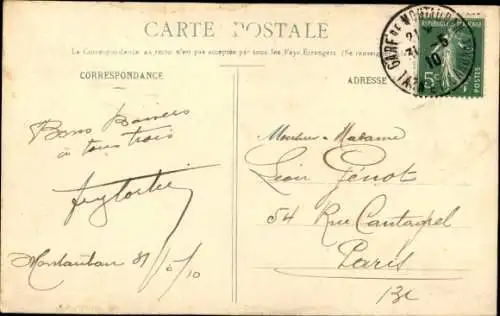 CARTE POSTALE
La Correspondance au recto n'est pas acceptée par tous les Pays Etrangers (Se renseign
CORRESPONDANCE
ADRESSE
GARE DE MONTAUBAN
5c
POSTES
Bons Baisers
à tous trois
Montauban 31/5/10
Monsieur Madame
Léon Génot
54 Rue Cantagrel
Paris